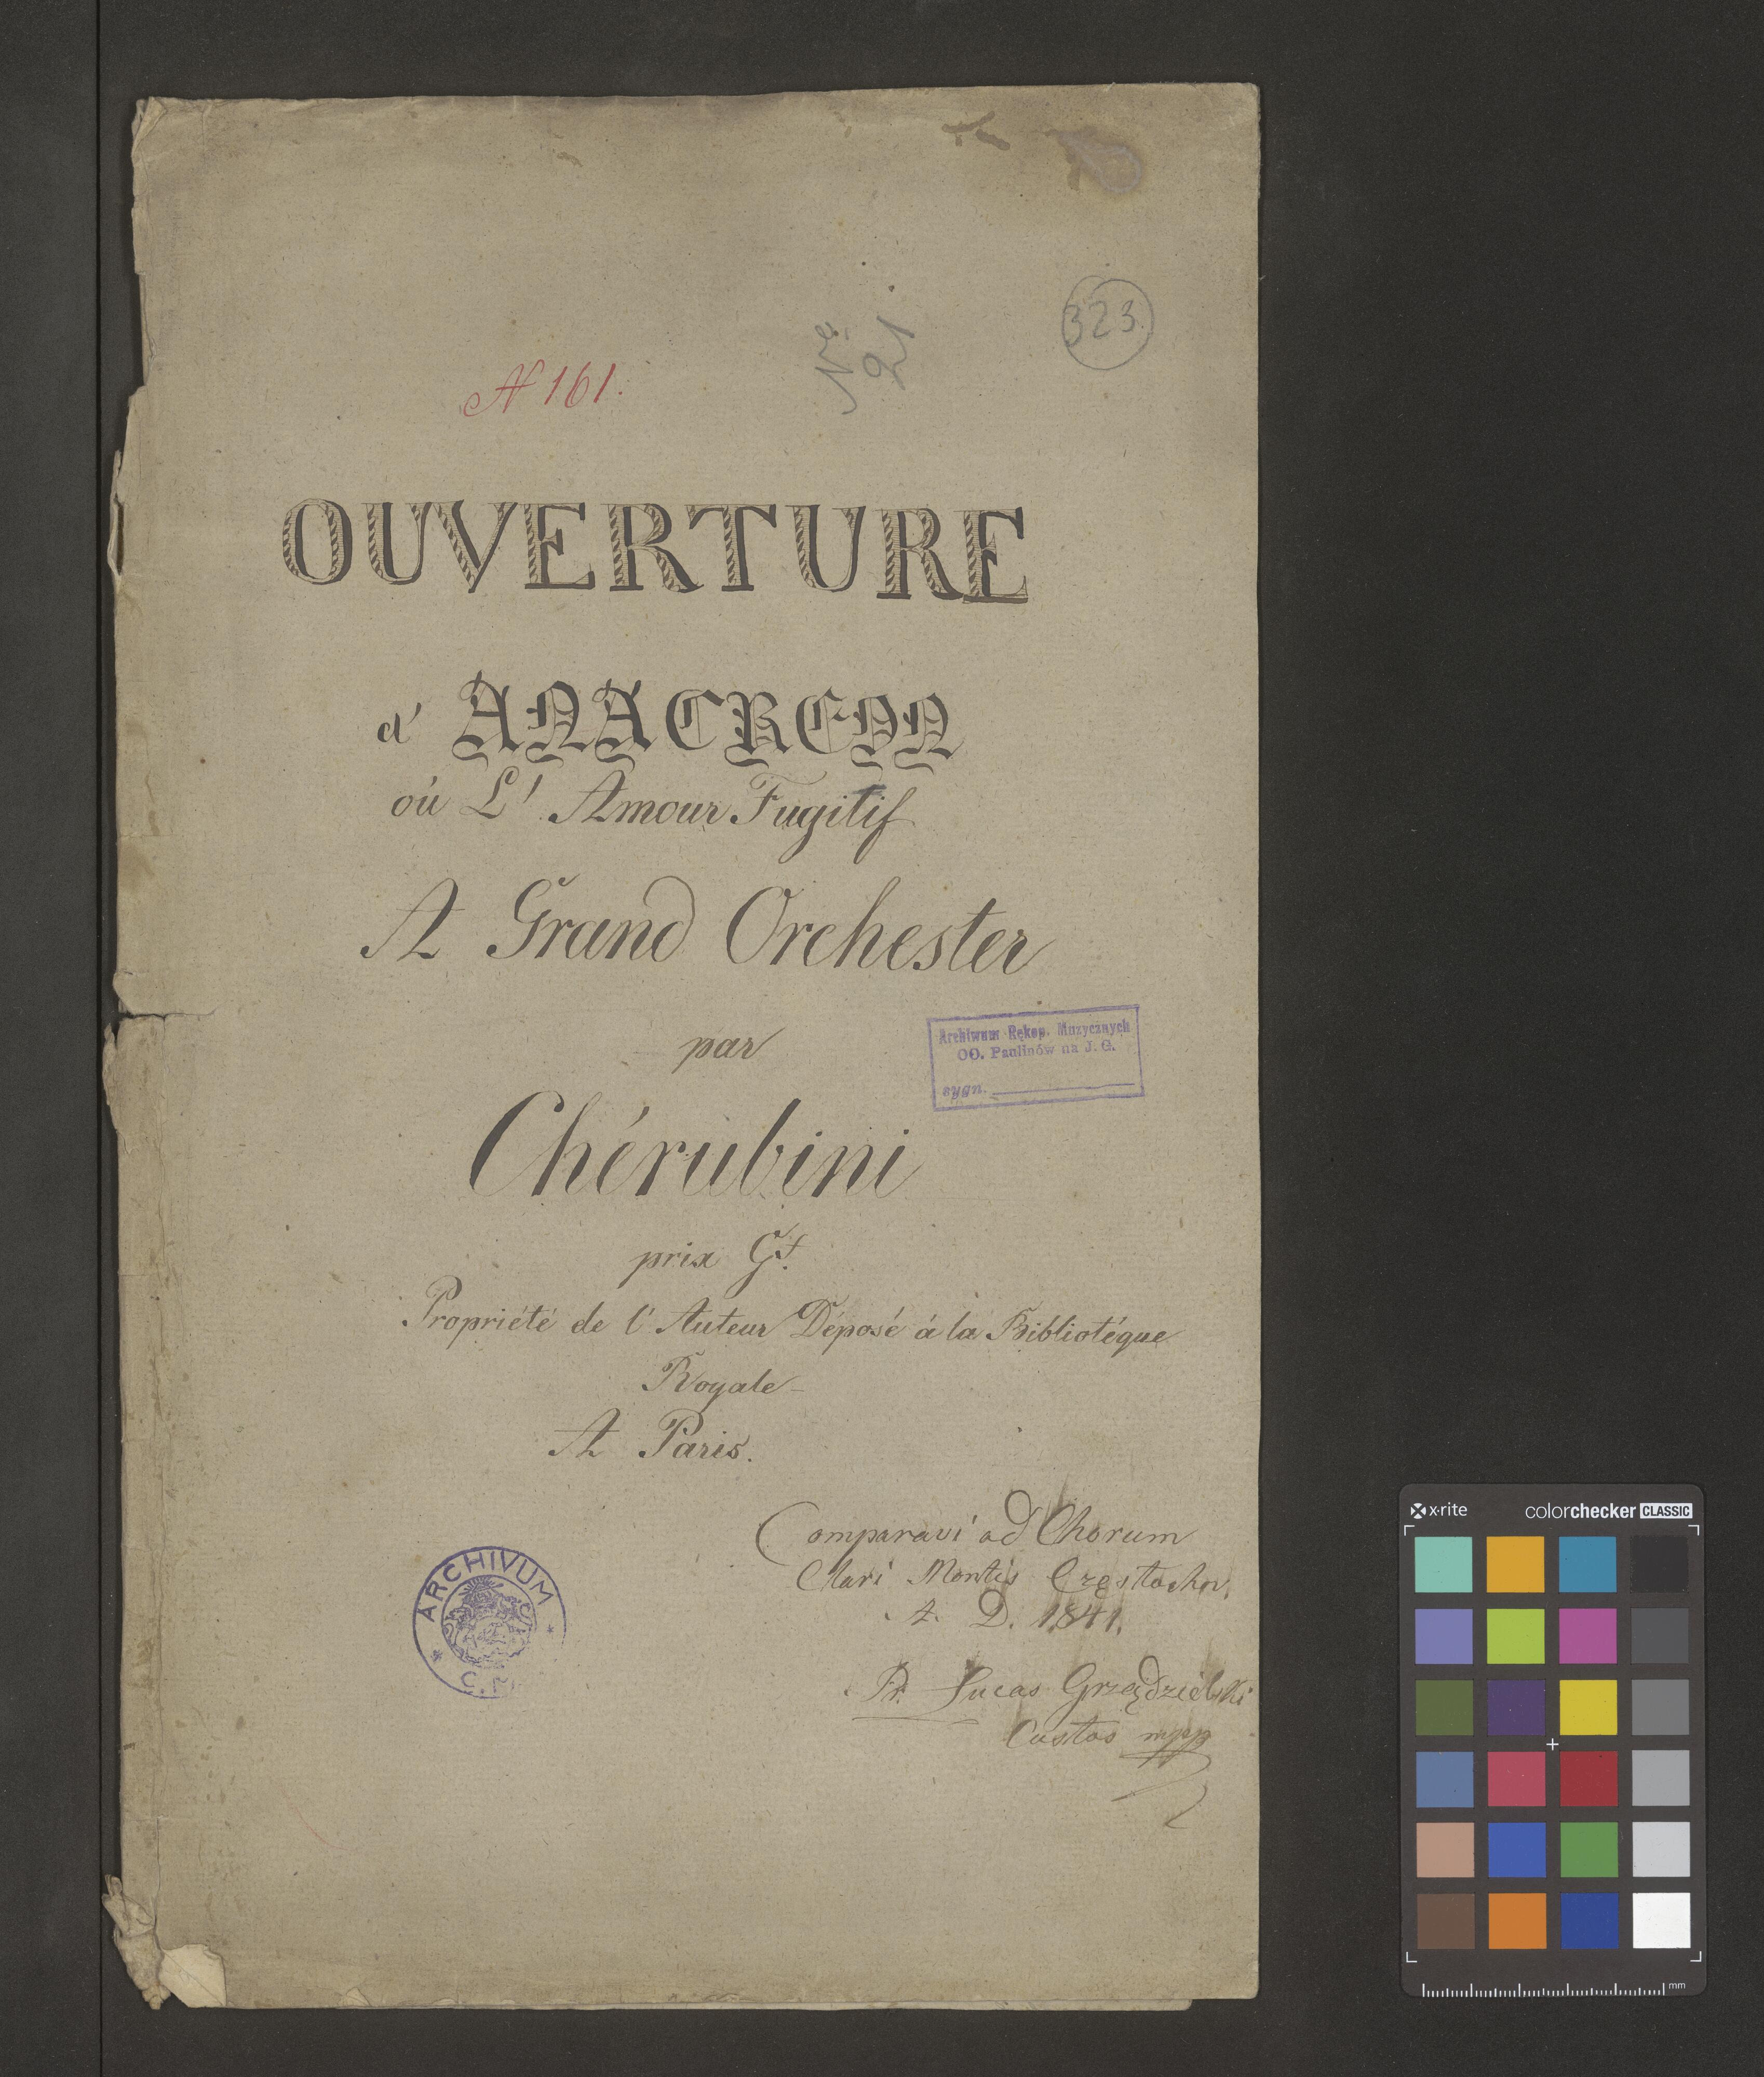 323
Nro 21
N 161.
OUVERTURE
d' ANACREON
où L' Amour Fugitif
A Grand Orchester
par
Archiwum Rękop. Muzycznych
OO. Paulinów na J. G.
sygn.
Chérubini
prix
Propriété de l' Auteur Déposé à la Bibliotéque
Royale
A Paris.
Comparavi ad Chorum
Clari Montis Częstochov.
A. D. 1841.
ARCHIVUM
Pr. Lucas Grządzielski
Custos mpp
x-rite colorchecker CLASSIC
mm